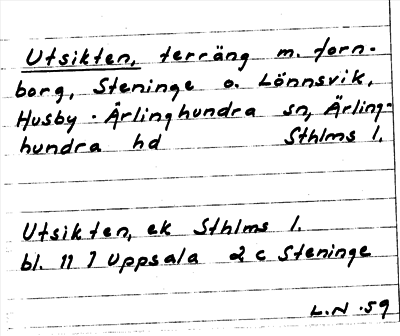 Utsikten, terräng m. forn-
borg, Steninge o. Lönnsvik,
Husby - Ärlinghundra sn, Ärling-
hundra hd Sthlms l.
Utsikten, ek Sthlms l.
bl. 11 I Uppsala 2 c Steninge
L.N -59